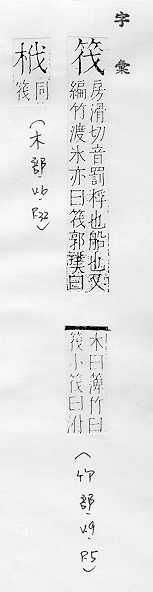 字彙
筏
房滑切音罰桴也船也又
編竹渡水亦曰筏郭璞曰
木曰簿竹曰
筏小筏曰泭
(竹部·v9·P.5)
栰
同
筏
(木部·v6·P.32)